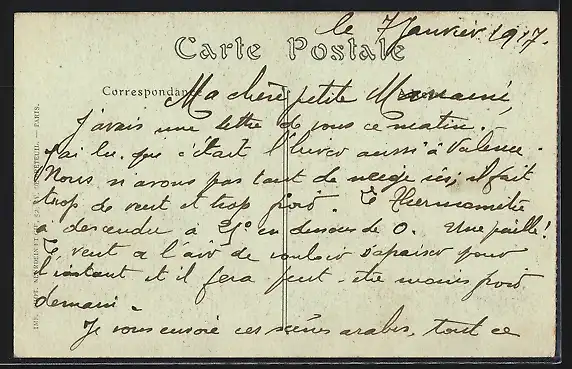 le 7 Janvier 1917.
Carte Postale
Correspondance
Ma chère petite Maman,
J'avais une lettre de vous ce matin.
J'ai lu que c'était l'hiver aussi à Valence.
Nous n'avons pas tant de neige ici, il fait
trop de vent et trop froid. Le Thermomètre
a descendu à 25° en dessous de 0. Une paille!
Le vent a l'air de vouloir s'apaiser pour
l'instant et il fera peut-être moins froid
demain.
Je vous envoie ces scènes arabes, tout ce
IMP. PHOT. NEURDEIN ET CIE. - 52, AV. DE BRETEUIL. — PARIS.